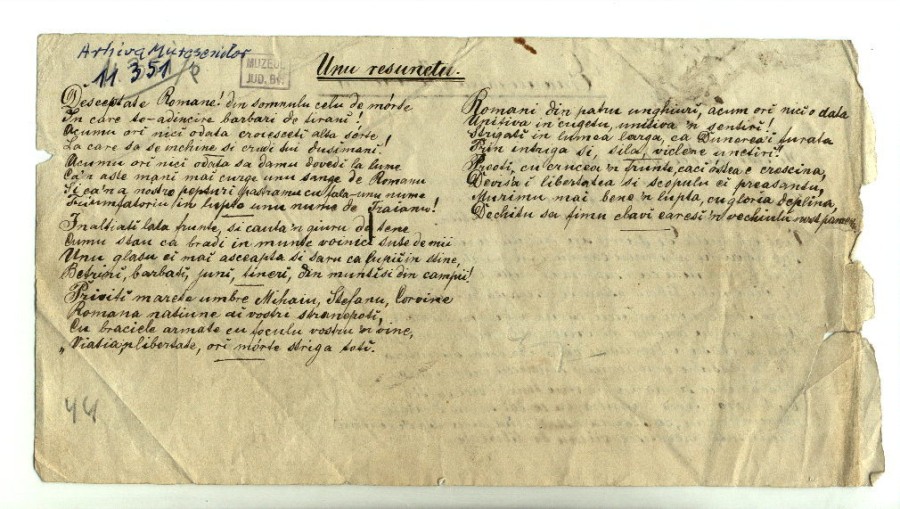 Arhiva Mureșenilor
11.351
MUZEUL
JUD. BV.
Unu resunetu.
Desceptate Romane! din somnulu celu de mórte
In care te-adincire barbari de tirani!
Acumu ori nici odata croiesceti alta sórte,
La care sa se mchine si crudi tui dusimani!
Acumu ori nici odata sa damu dovedi la lume
Ca'n aste mani mai curge unu sange de Romanu
Si ca'n a nostre pepturi pastramu cu fala-unu nume
Triumfatoriu in lupte unu nume de Traianu!
Inaltiati lata frunte, si cauta'n giuru de tene
Cumu stau ca bradi in munte voinici sute de mii
Unu glasu ei mai asceapta si saru ca lupii in stine,
Betrini, barbati, juni, tineri, din muntisi din campii!
Priviti marete umbre Mihaiu, Stefanu, Corvine
Romana natiune ai vostri stranepoti,
Cu braciele armate cu foculu vostru'n vine,
„Viatia'n libertate, ori mórte striga toti.
Romani din patru unghiuri, acum ori nici o data
Uniti va in cugetu, uniti va 'n sentiri!
Strigati in lumea larga, ca Dunerea'i furata
Prin intriga si, sila, viclene uneltiri!
Preoti, cu crucea 'n frunte, caci óstea e crescina,
Devisa i libertatea si scopulu ei preasantu,
Murimu mai bene 'n lupta, cu gloria deplina,
Dechitu sa fimu clavi earesi 'n vechiulu nost
44